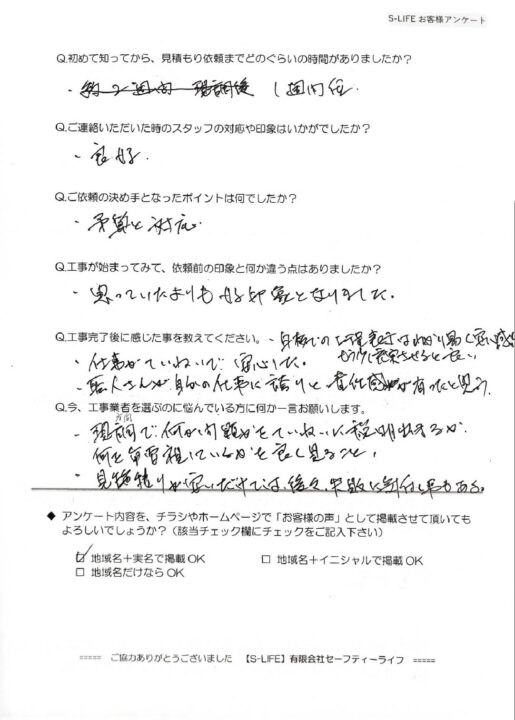 S-LIFE お客様アンケート
Q.初めて知ってから、見積もり依頼までどのぐらいの時間がありましたか?
・約2週間 現調後 1週間位.
Q.ご連絡いただいた時のスタッフの対応や印象はいかがでしたか?
・良好.
Q.ご依頼の決め手となったポイントは何でしたか?
・予算と対応.
Q.工事が始まってみて、依頼前の印象と何か違う点はありましたか?
・思っていたよりも好印象となりました.
Q.工事完了後に感じた事を教えてください。
・見積での工程表はわかり易く安心感
・仕事がていねいで安心した.
・職人さんが自分の仕事に誇りと責任感が有ったと思う.
Q.今、工事業者を選ぶのに悩んでいる方に何か一言お願いします。
・現調で何が問題かをていねいに説明出来るか
何を重要視しているかを良く見ること,
・見積りが安いだけでは、後々、失敗に気付く事もある.
◆ アンケート内容を、チラシやホームページで「お客様の声」として掲載させて頂いても
よろしいでしょうか?(該当チェック欄にチェックをご記入下さい)
☑ 地域名+実名で掲載 OK □ 地域名+イニシャルで掲載 OK
□ 地域名だけなら OK
===== ご協力ありがとうございました 【S-LIFE】有限会社セーフティーライフ =====